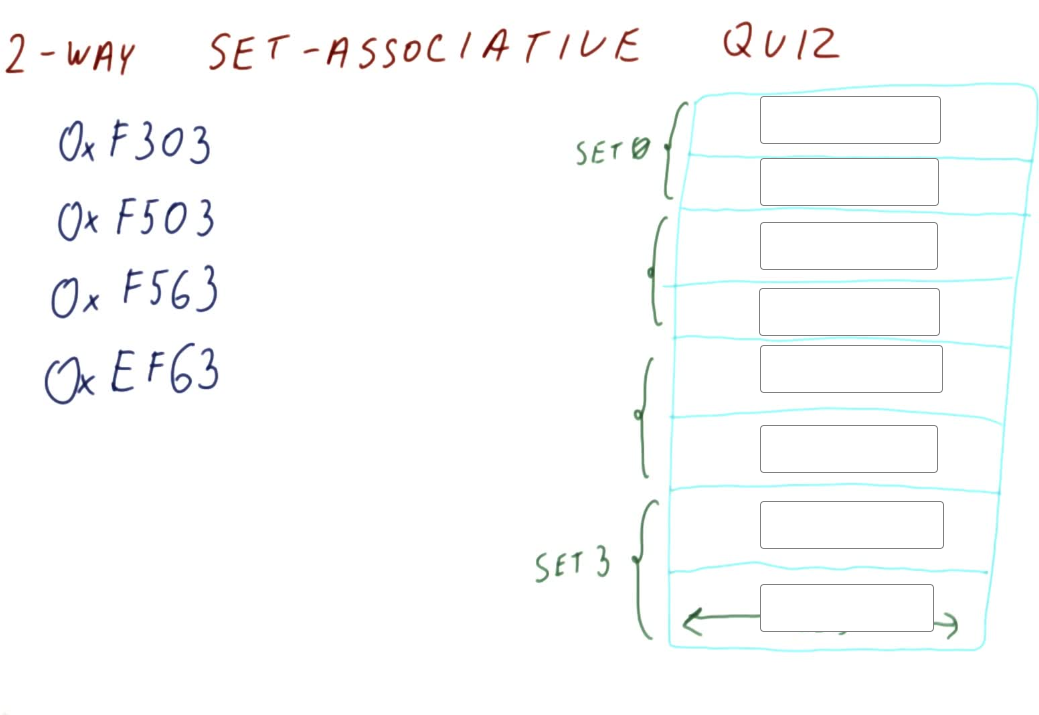 2-WAY SET-ASSOCIATIVE QUIZ
0x F303
0x F503
0x F563
0x EF63
SET 0
SET 3